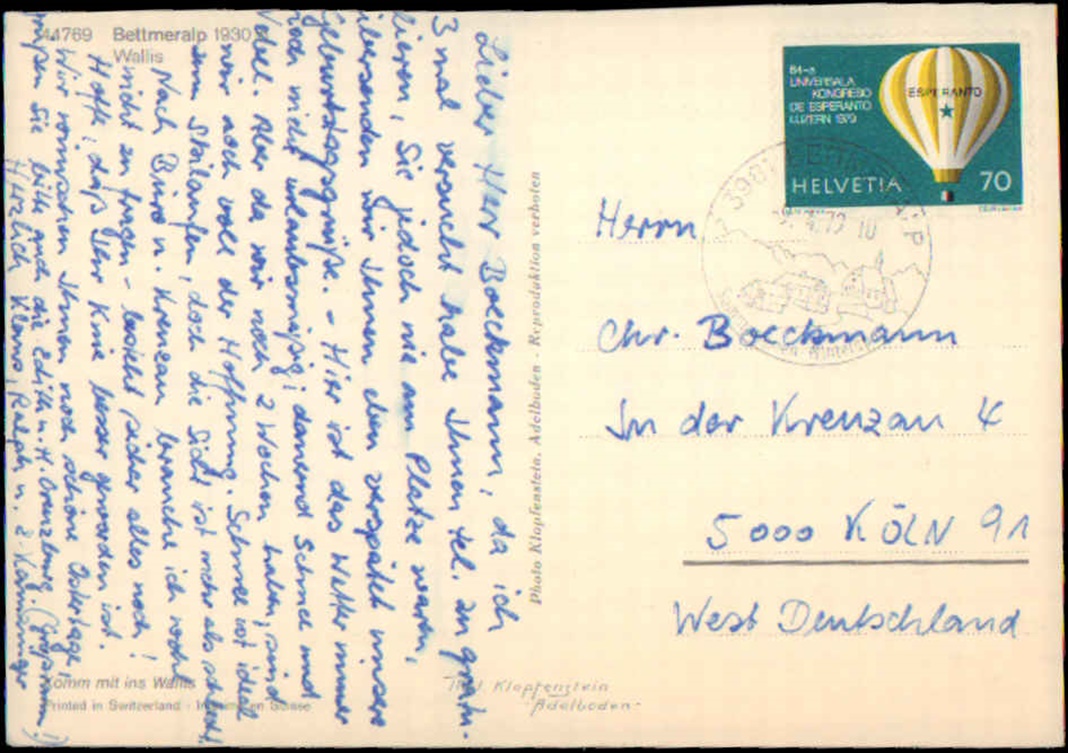 44769 Bettmeralp 1930
Wallis
Lieber Herr Boeckmann, da ich
3 mal versucht habe Ihnen tel. zu gratu-
lieren, Sie jedoch nie am Platze waren,
übersenden wir Ihnen eben verspätet unsere
Geburtstagsgrüße. - Hier ist das Wetter immer
noch nicht urlaubsmäßig; dauernd Schnee und
Nebel. Aber da wir noch 2 Wochen haben, sind
wir noch voll der Hoffnung. Schnee ist ideal
zum Skilaufen, doch die Sicht ist mehr als schlecht.
Nach Büro u. Krenzau brauche ich wohl
nicht zu fragen - besteht sicher alles noch!
Hoffe, daß Ihr Knie besser geworden ist.
Wir wünschen Ihnen noch schöne Ostertage,
grüßen Sie bitte auch die Edith u. H.
Herzlich Klemo, Ralph u.
Komm mit ins Wallis
Printed in Switzerland · Imprimé en Suisse
Photo Klopfenstein, Adelboden - Reproduktion verboten
Klopfenstein
-Adelboden-
64-a
UNIVERSALA
KONGRESO
DE ESPERANTO
LUZERN 1979
ESPERANTO
HELVETIA 70
3981 BETTMERALP
Herrn
Chr. Boeckmann
In der Krenzau 4
5000 KÖLN 91
West Deutschland